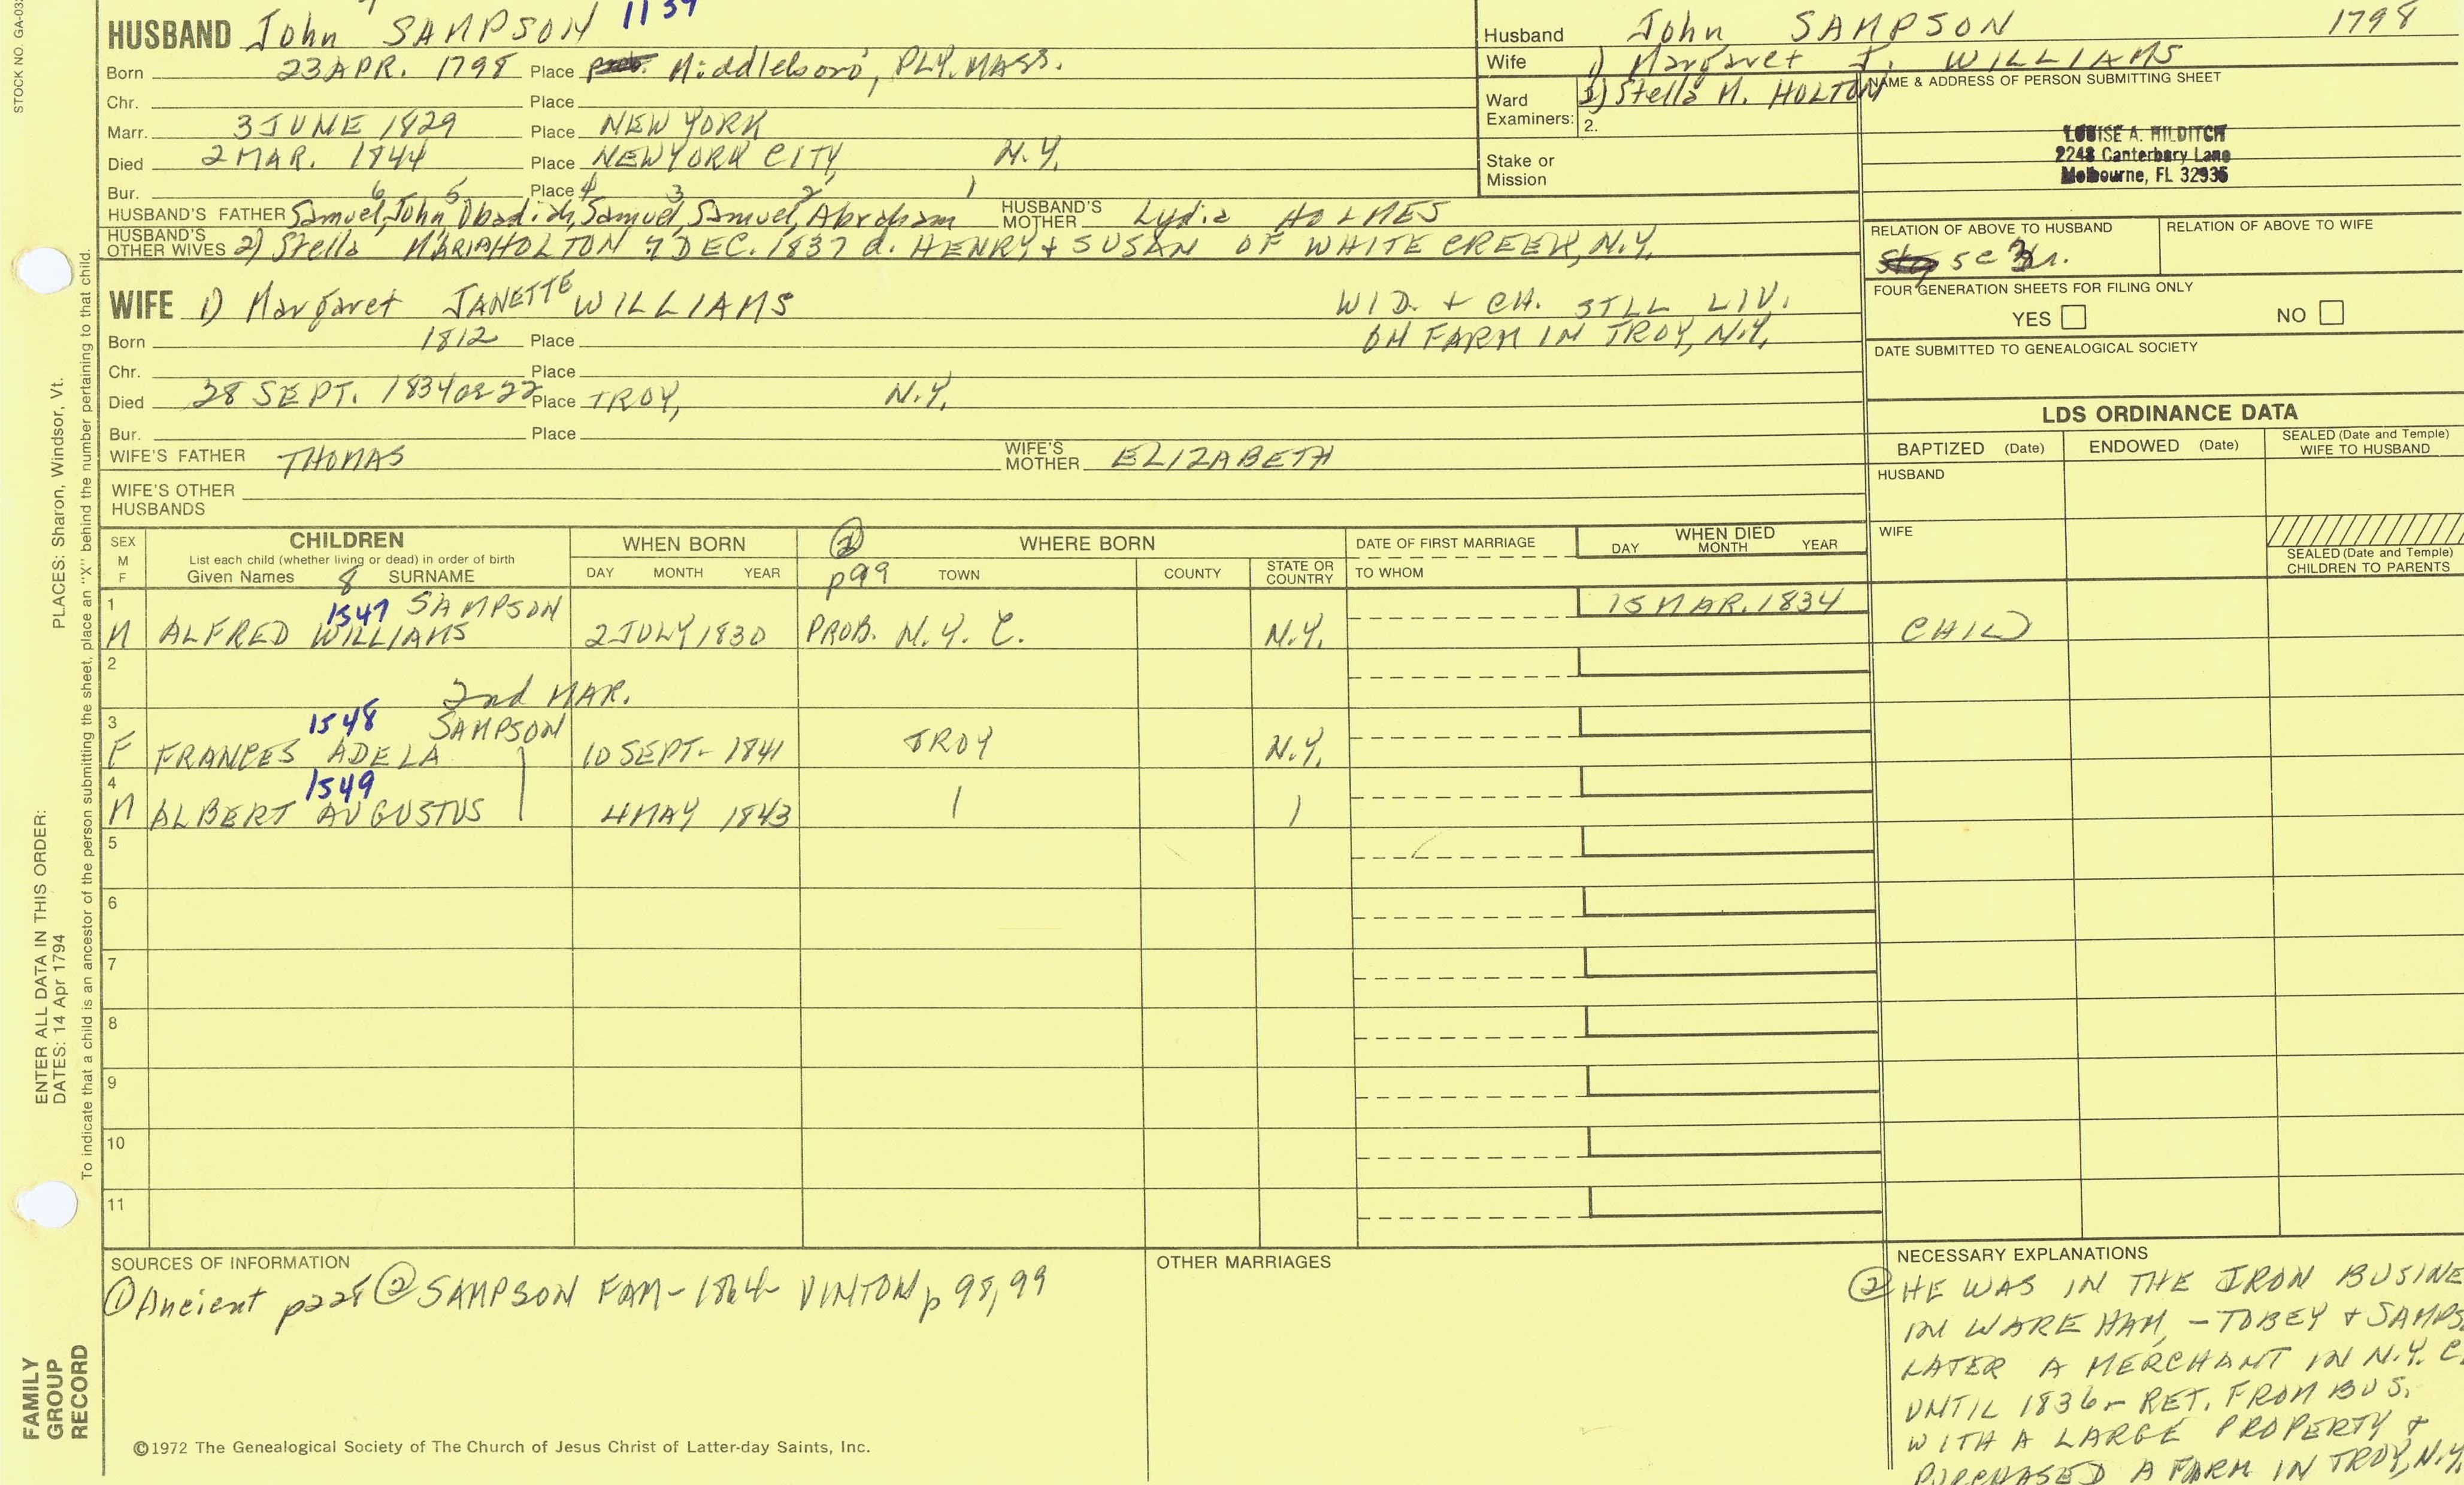 STOCK NO. GA-03
HUSBAND John SAMPSON 1139
Born 23 APR. 1798 Place Middleboro, PLY. MASS.
Chr. Place
Marr. 3 JUNE 1829 Place NEW YORK
Died 2 MAR. 1844 Place NEW YORK CITY, N.Y.
Bur. Place
6 5 4 3 2 1
HUSBAND'S FATHER Samuel, John, Obadiah, Samuel, Samuel, Abraham HUSBAND'S MOTHER Lydia HOLMES
HUSBAND'S OTHER WIVES 2) Stella MARIA HOLTON 7 DEC. 1837 d. HENRY + SUSAN OF WHITE CREEK, N.Y.
WIFE 1) Margaret JANETTE WILLIAMS
WID. + CH. STILL LIV.
ON FARM IN TROY, N.Y.
Born 1812 Place
Chr. Place
Died 28 SEPT. 1834 OR 22 Place TROY, N.Y.
Bur. Place
WIFE'S FATHER THOMAS WIFE'S MOTHER ELIZABETH
WIFE'S OTHER HUSBANDS
Husband John SAMPSON 1798
Wife 1) Margaret J. WILLIAMS
2) Stella M. HOLTON
Ward Examiners: 2.
Stake or Mission
NAME & ADDRESS OF PERSON SUBMITTING SHEET
LOUISE A. HILDITCH
2248 Canterbury Lane
Melbourne, FL 32935
RELATION OF ABOVE TO HUSBAND RELATION OF ABOVE TO WIFE
5 C
FOUR GENERATION SHEETS FOR FILING ONLY
YES NO
DATE SUBMITTED TO GENEALOGICAL SOCIETY
LDS ORDINANCE DATA
BAPTIZED (Date) ENDOWED (Date) SEALED (Date and Temple) WIFE TO HUSBAND
HUSBAND
WIFE
SEALED (Date and Temple) CHILDREN TO PARENTS
SEX M F
CHILDREN
List each child (whether living or dead) in order of birth
Given Names 8 SURNAME
WHEN BORN
DAY MONTH YEAR
② p99
WHERE BORN
TOWN COUNTY STATE OR COUNTRY
DATE OF FIRST MARRIAGE
TO WHOM
WHEN DIED
DAY MONTH YEAR
1 1547 SAMPSON 15 MAR. 1834
M ALFRED WILLIAMS 2 JULY 1830 PROB. N.Y.C. N.Y. CHILD
2
2nd MAR.
3 1548 SAMPSON
F FRANCES ADELA 10 SEPT- 1841 TROY N.Y.
4 1549
M ALBERT AUGUSTUS 4 MAY 1843
5
6
7
8
9
10
11
SOURCES OF INFORMATION
① Ancient p228 ② SAMPSON FAM - 1864- VINTON p 98,99
OTHER MARRIAGES
NECESSARY EXPLANATIONS
② HE WAS IN THE IRON BUSINE
IN WAREHAM, - TOBEY + SAMPS
LATER A MERCHANT IN N.Y.C.
UNTIL 1836- RET. FROM BUS.
WITH A LARGE PROPERTY +
PURCHASED A FARM IN TROY, N.Y.
©1972 The Genealogical Society of The Church of Jesus Christ of Latter-day Saints, Inc.
FAMILY GROUP RECORD
ENTER ALL DATA IN THIS ORDER:
DATES: 14 Apr 1794 PLACES: Sharon, Windsor, Vt.
To indicate that a child is an ancestor of the person submitting the sheet, place an "X" behind the number pertaining to that child.